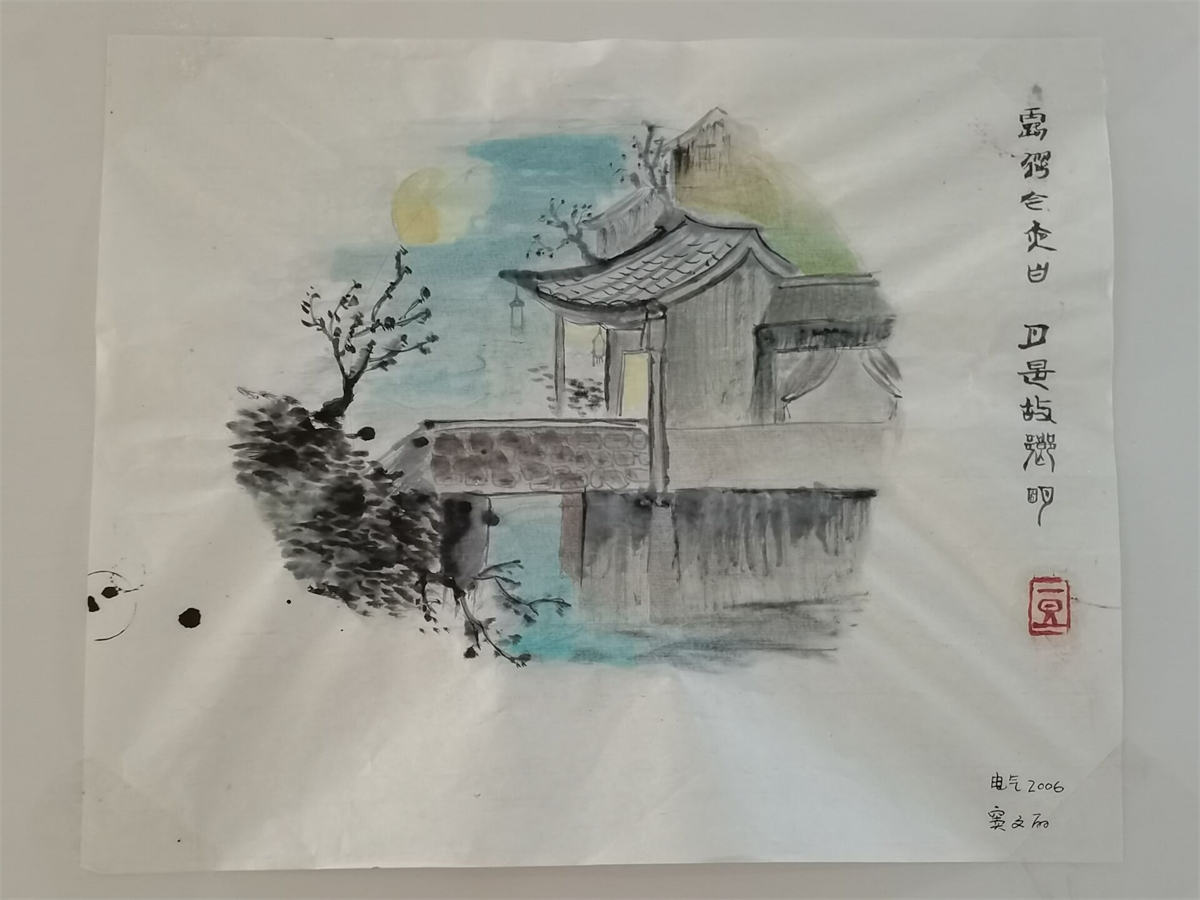 露從今夜白 月是故鄉明
电气2006
窦文丽